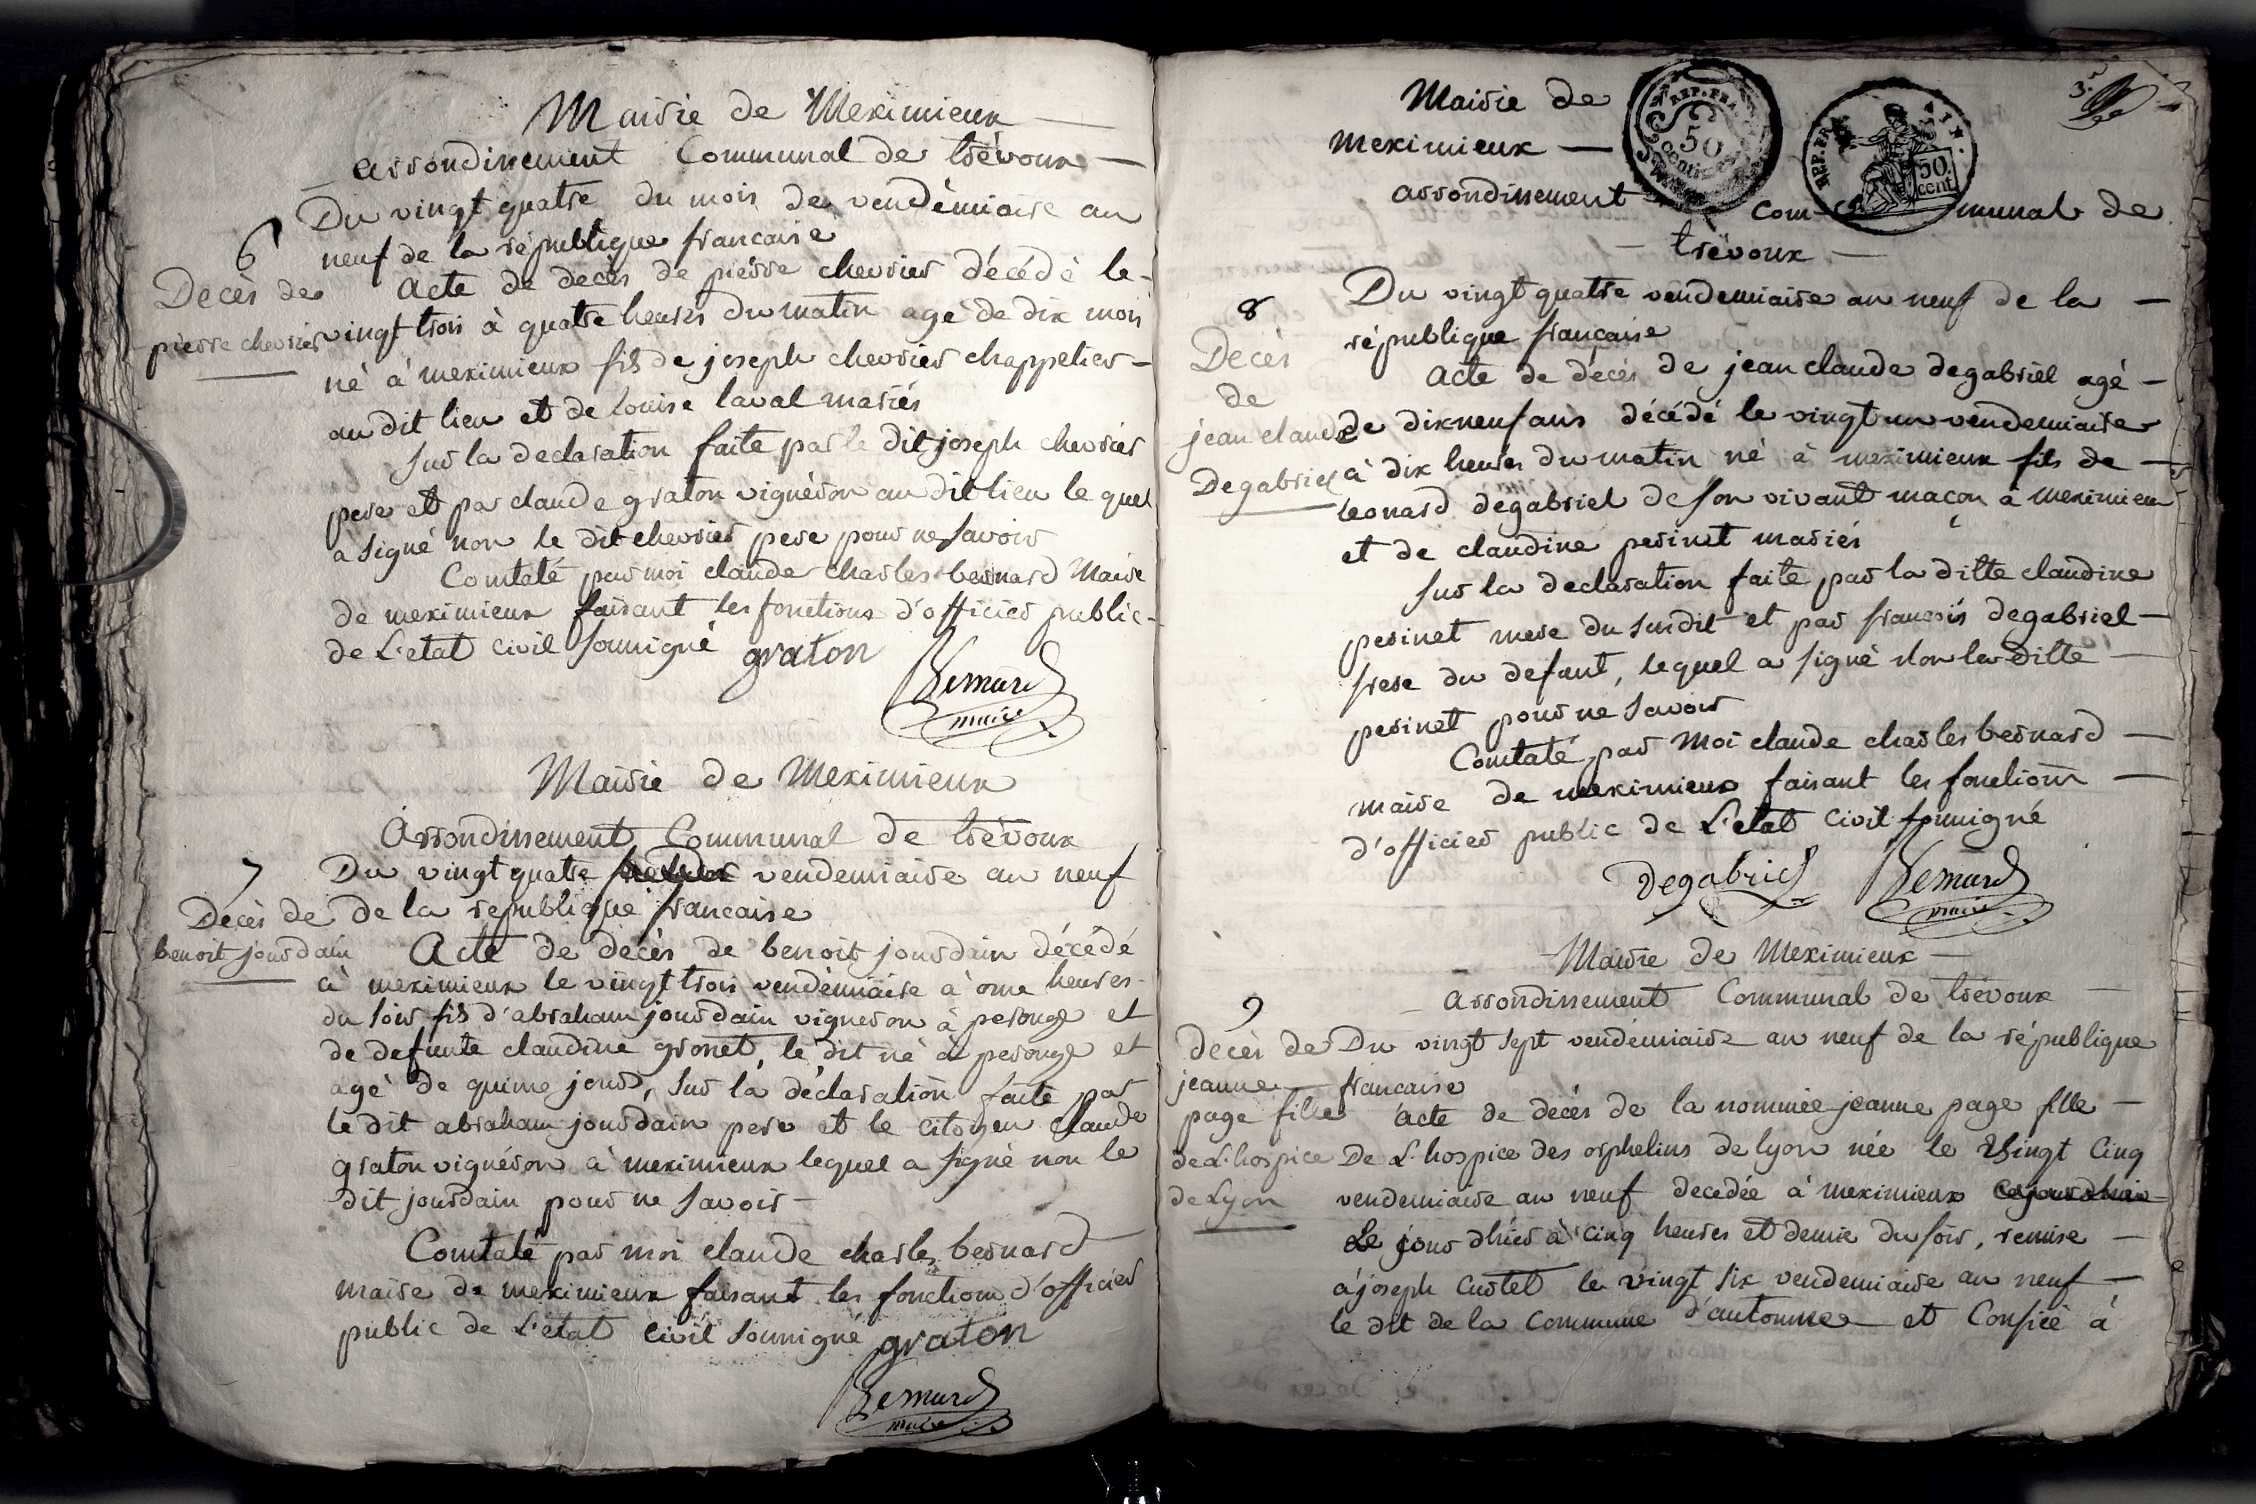 Mairie de Meximieux
arrondissement Communal de trévoux
6
Du vingt quatre du mois de vendémiaire an
neuf de la république francaise
Décès de
pierre chevrier
Acte de décès de pierre chevrier décédé le
vingt trois à quatre heures du matin agé de dix mois
né à meximieux fils de joseph chevrier chappelier
au dit lieu et de louise laval mariés
sur la declaration faite par le dit joseph chevrier
pere et par claude graton vignéron au dit lieu le quel
a signé non le dit chevrier pere pour ne savoir
Constaté par moi claude charles bernard Maire
de meximieux faisant les fonctions d'officier public
de L'etat civil soussigné graton
Bernard
maire
Mairie de Meximieux
Arrondissement Communal de trévoux
7
Du vingt quatre vendemiaire an neuf
de la republique francaise
Décès de
benoit jourdain
Acte de decès de benoit jourdain décédé
à meximieux le vingt trois vendémiaire à onze heures
du soir fils d'abraham jourdain vigneron à perouge et
de defunte claudine gronet, le dit né à perouge et
agé de quinze jours, sur la déclaration faite par
le dit abraham jourdain pere et le citoyen claude
graton vignéron à meximieux lequel a signé non le
dit jourdain pour ne savoir
Constaté par moi claude charles bernard
maire de meximieux faisant les fonctions d'officier
public de L'état civil soussigné graton
Bernard
maire
Mairie de
meximieux
REP. FRA.
50
centimes
REP. FRA
50
cent.
3.
arrondissement com-munal de
trévoux
8
Du vingt quatre vendemiaire an neuf de la
république française
Décès
de
jean claude
Degabriel
Acte de décès de jean claude degabriel agé
de dix neuf ans décédé le vingt un vendemiaire
à dix heures du matin né à meximieux fils de
leonard degabriel de son vivant maçon à meximieux
et de claudine perinet mariés
sur la declaration faite par la ditte claudine
perinet mere du susdit et par françois degabriel
frere du defunt, lequel a signé non la ditte
perinet pour ne savoir
Constaté par moi claude charles bernard
maire de meximieux faisant les fonctions
d'officier public de L'etat civil soussigné
Degabriel Bernard
maire
Mairie de Meximieux
arrondissement Communal de trévoux
9
Du vingt sept vendémiaire an neuf de la république
francaise
décès de
jeanne
page fille
de L'hospice
de Lyon
acte de décès de la nommée jeanne page fille
De L'hospice des orphelins de lyon née le vingt cinq
vendemiaire an neuf decedée à meximieux
Le jour dhier à cinq heures et demie du soir, remise
à joseph Custet le vingt six vendemiaire an neuf
le dit de la commune d'automne et Confiée à